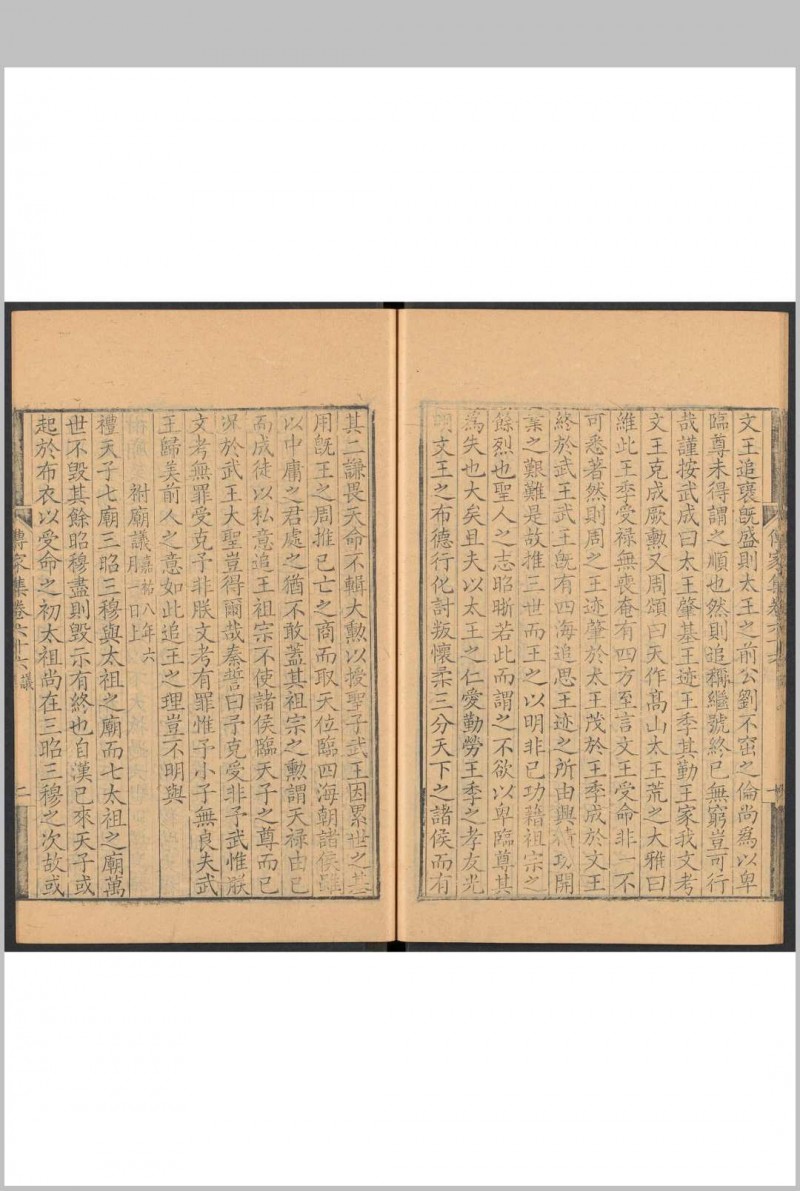 文王追襃既盛則太王之前公劉不窋之倫尚為以卑
臨尊未得謂之順也然則追稱繼號終已無窮豈可行
哉謹按武成曰太王肇基王迹王季其勤王家我文考
文王克成厥勲又周頌曰天作高山太王荒之大雅曰
維此王季受禄無喪奄有四方至言文王受命非一不
可悉著然則周之王迹肇於太王茂於王季成於文王
終於武王武王既有四海追思王迹之所由興積功開
業之艱難是故推三世而王之以明非已功籍祖宗之
餘烈也聖人之志昭晰若此而謂之不欲以卑臨尊其
為失也大矣且夫以太王之仁愛勤勞王季之孝友光
明文王之布德行化討叛懷柔三分天下之諸侯而有
其二謙畏天命不輯大勲以授聖子武王因累世之基
用既王之周推已亡之商而取天位臨四海朝諸侯雖
以中庸之君處之猶不敢蓋其祖宗之勲謂天禄由已
而成徒以私意追王祖宗不使諸侯臨天子之尊而已
况於武王大聖豈得爾哉秦誓曰予克受非予武惟朕
文考無罪受克予非朕文考有罪惟予小子無良夫武
王歸美前人之意如此追王之理豈不明與
祔廟議嘉祐八年六月一日上
禮天子七廟三昭三穆與太祖之廟而七太祖之廟萬
世不毁其餘昭穆盡則毁示有終也自漢已來天子或
起於布衣以受命之初太祖尚在三昭三穆之次故或
傳家集卷六十六 議 二